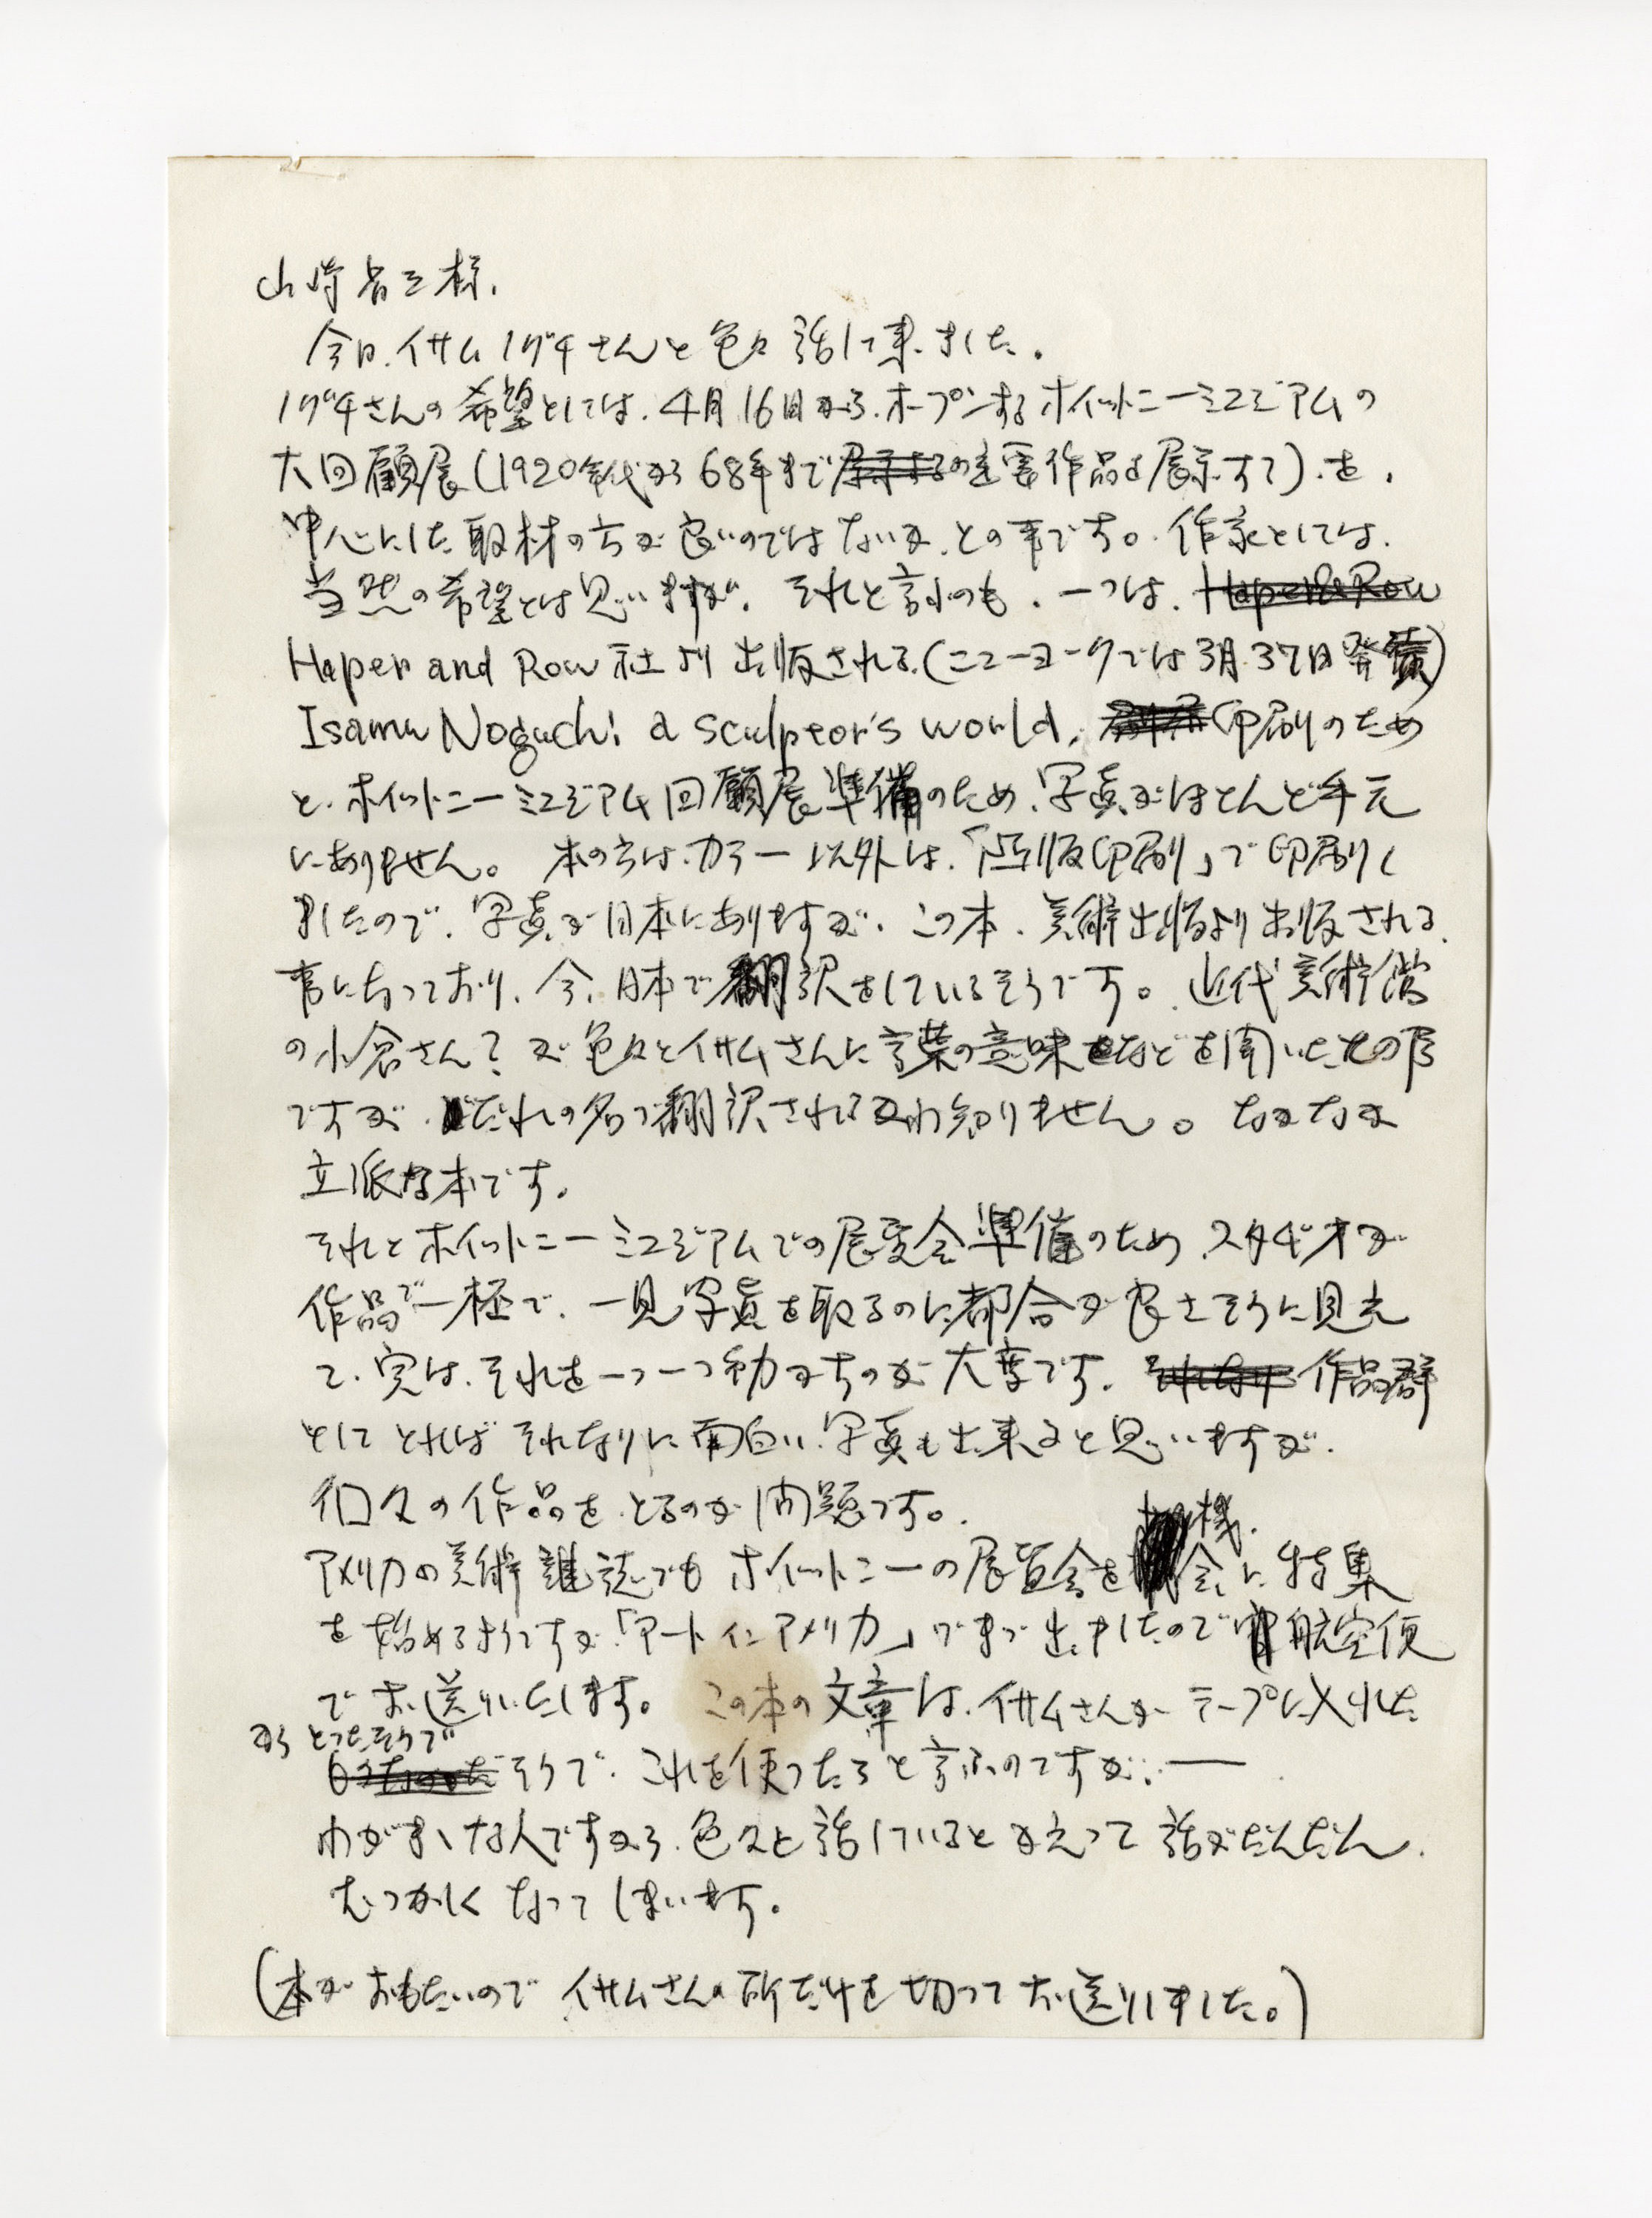 山崎省三様.
今日.イサムノグチさんと色々話して来ました。
ノグチさんの希望としては.4月16日から.オープンするホイットニーミュジアムの
大回顧展(1920年代から68年までの主要作品を展示すて).を.
中心にした取材の方が良いのではないか.との事です。作家としては.
当然の希望とは思いますが.それと言ふのも.一つは. Haper & Row
Haper and Row 社より出版される.(ニューヨークでは3月37日発売)
Isamu Noguchi a sculpteor's world. 印刷のため
と.ホイットニーミュジアム回顧展準備のため.写真がほとんど手元
にありません。本の方は.カラー以外は.「凸版印刷」で印刷し
ましたので.写真が日本にありますが.この本.美術出版より出版される.
事になっており.今.日本で翻訳をしているそうです。近代美術館
の小倉さん?が色々とイサムさんに言葉の意味などを聞いたとの事
ですが.だれの名で翻訳されるかわ知りません。なかなか
立派な本です.
それとホイットニーミュジアムでの展覧会準備のため.スタヂオが
作品で一極で.一見写真を取るのに都合が良さそうに見え
て.実は.それを一つ一つ動かすのが大変です. 作品群
としてとればそれなりに面白い.写真も出来ると思いますが.
個々の作品を.とるのが問題です。.
アメリカの美術雑誌でもホイットニーの展覧会を機会に特集
を始めるようですが「アートインアメリカ」がまづ出ましたので航空便
でお送りいたします。この本の文章は.イサムさんがテープに入れた
からとったそうで
そうで.これを使ったらと言ふのですが..―
わがまゝな人ですから.色々と話しているとかえって話がだんだん.
むつかしくなってしまいます.
(本がおもたいのでイサムさんの所だけを切ってお送りしました。)